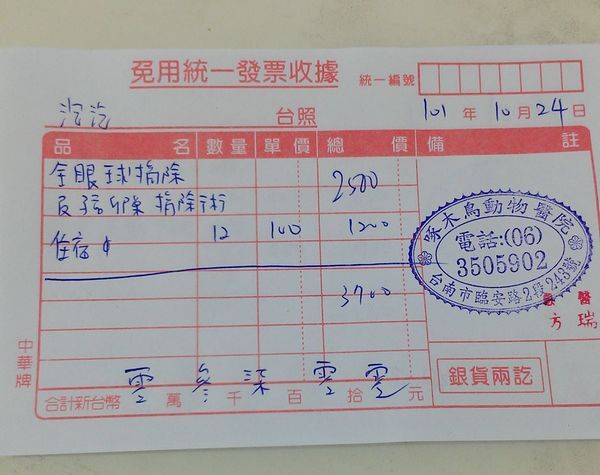 免用統一發票收據
統一編號
台照
101年10月24日
品名 數量 單價 總價 備註
全眼球摘除 2500
摘除術
住宿 12 100 1200
3700
啄木鳥動物醫院
電話:(06)
3505902
台南市臨安路2段243號
醫
方瑞
中華牌
合計新台幣 零萬參千柒百零拾零元
銀貨兩訖